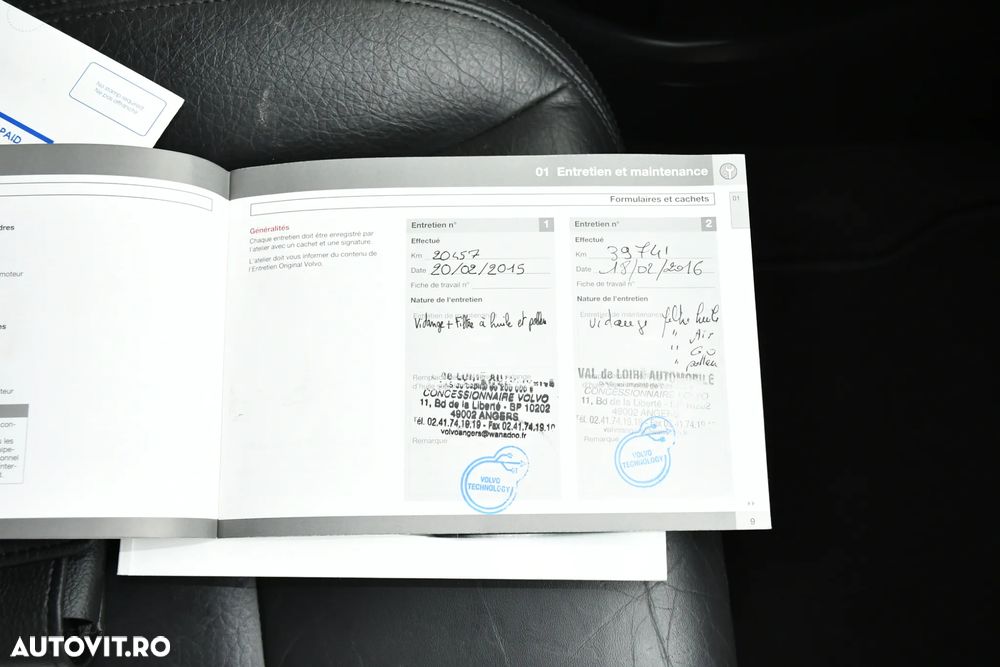 No stamp required
Ne pas affranchir
PAID
01 Entretien et maintenance
Formulaires et cachets
01
Généralités
Chaque entretien doit être enregistré par
l'atelier avec un cachet et une signature.
L'atelier doit vous informer du contenu de
l'Entretien Original Volvo.
Entretien n° 1
Effectué
Km 20457
Date 20/02/2015
Fiche de travail n°
Nature de l'entretien
Entretien de maintenance
Vidange + Filtre à huile et pollen
CONCESSIONNAIRE VOLVO
11, Bd de la Liberté - BP 10202
49002 ANGERS
Tél. 02.41.74.19.19 - Fax 02.41.74.19.10
volvoangers@wanadoo.fr
Remarque
VOLVO
TECHNOLOGY
Entretien n° 2
Effectué
Km 39741
Date 18/02/2016
Fiche de travail n°
Nature de l'entretien
Entretien de maintenance
Vidange filtre huile
" Air
" GO
" pollen
VAL de LOIRE AUTOMOBILE
CONCESSIONNAIRE VOLVO
11, Bd de la Liberté - BP 10202
49002 ANGERS
Tél. 02.41.74.19.19 - Fax 02.41.74.19.10
Remarque
VOLVO
TECHNOLOGY
9
moteur
AUTOVIT.RO